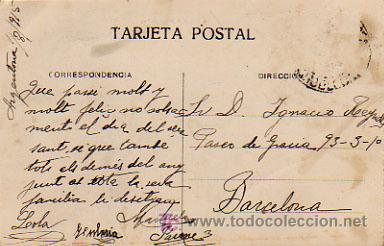 TARJETA POSTAL
CORRESPONDENCIA
DIRECCIÓN
Argentona
Que passi molt y
molt felis no sola
ment el dia del seu
sant, si que també
tots els demés del any
junt ab tota la seva
familia li desitjan
Lola
Jaume
Sr D. Ignacio
Paseo de Gracia 93-3-10
Barcelona
www.todocoleccion.net